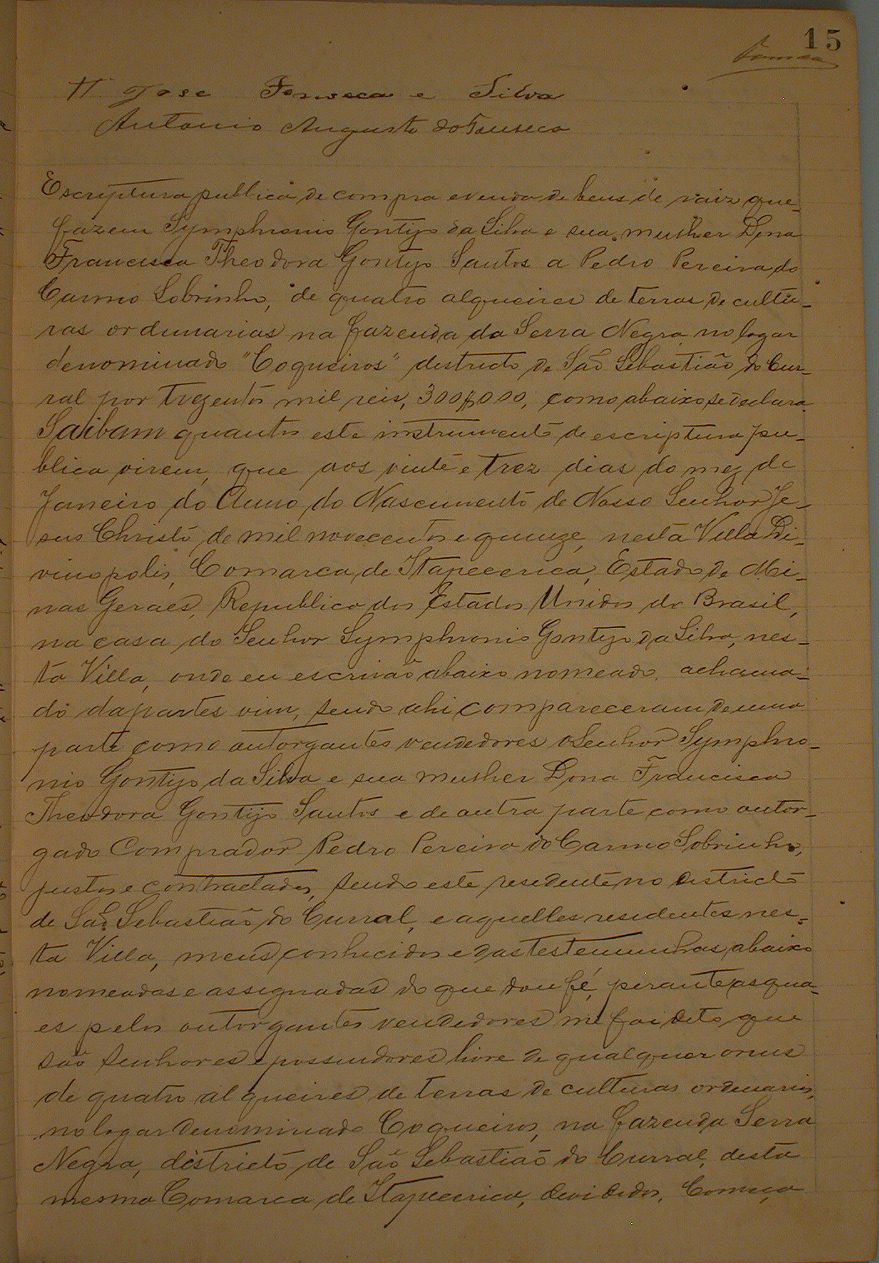 15
Tª José Fonseca e Silva
Antonio Augusto da Fonseca
Escriptura publica de compra e venda de bens de raiz que
fazem Symphronio Gontijo da Silva e sua mulher Dona
Francisca Theodora Gontijo Santos a Pedro Pereira do
Carmo Sobrinho, de quatro alqueires de terras de cultu-
ras ordinarias na fazenda da Serra Negra no logar
denominado "Coqueiros" districto de São Sebastião do Cur-
ral por trezentos mil reis, 300$000, como abaixo se declara
Saibam quantos este instrumento de escriptura pu-
blica virem, que aos vinte e trez dias do mez de
Janeiro do Anno do Nascimento de Nosso Senhor Je-
sus Christo, de mil novecentos e quinze, nesta Villa Di-
vinopolis, Comarca de Itapecerica, Estado de Mi-
nas Geraes, Republica dos Estados Unidos do Brasil,
na casa do Senhor Symphronio Gontijo da Silva, nes-
ta Villa, onde eu escrivão abaixo nomeado, a chama-
do da partes vim, sendo ahi compareceram de uma
parte como outorgantes vendedores o Senhor Symphro-
nio Gontijo da Silva e sua mulher Dona Francisca
Theodora Gontijo Santos e de outra parte como outor-
gado Comprador Pedro Pereira do Carmo Sobrinho,
justos e contractados, sendo este residente no districto
de São Sebastião do Curral, e aquelles residentes nes-
ta Villa, meus conhecidos e das testemunhas abaixo
nomeadas e assignadas do que dou fé, perante as qua-
es pelos outorgantes vendedores me foi dito que
são senhores e possuidores livre de qualquer onus
de quatro alqueires de terras de culturas ordinarias,
no logar denominado Coqueiros, na fazenda Serra
Negra, districto de São Sebastião do Curral, desta
mesma Comarca de Itapecerica, devididos, Começa